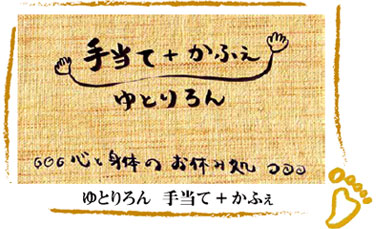 手当て + かふぇ
ゆとりろん
心と身体の お休み処
ゆとりろん 手当て + かふぇ